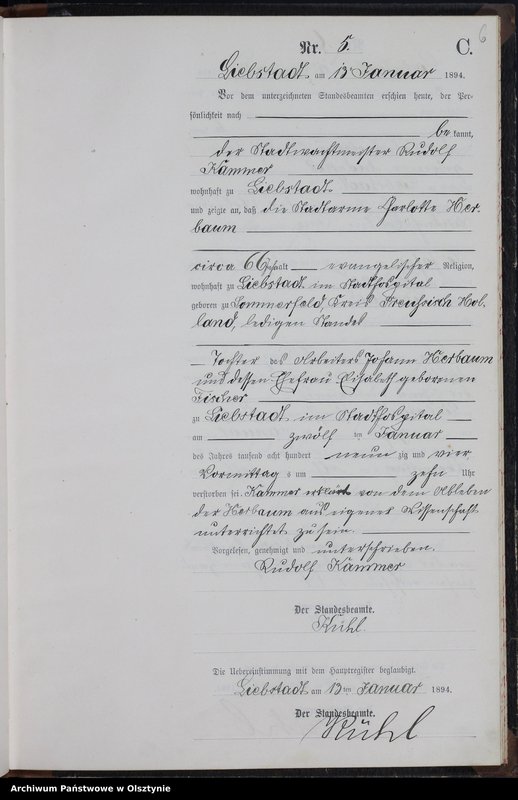 6
Nr. 5. C.
Liebstadt am 13 Januar 1894.
Vor dem unterzeichneten Standesbeamten erschien heute, der Per-
sönlichkeit nach
be kannt,
der Stadtwachtmeister Rudolf
Kämmer
wohnhaft zu Liebstadt
und zeigte an, daß die Stadtarme Charlotte Her-
baum
circa 66 Jahre alt evangelischer Religion,
wohnhaft zu Liebstadt im Stadthospital
geboren zu Sommerfeld, Kreis Preußisch Hol-
land, ledigen Standes
Tochter des Arbeiters Johann Herbaum
und dessen Ehefrau Elisabeth geborenen
Fischer
zu Liebstadt im Stadthospital
am zwölf ten Januar
des Jahres tausend acht hundert neun zig und vier
Vormittag s um zehn Uhr
verstorben sei. Kämmer erklärt von dem Ableben
der Herbaum aus eigener Wissenschaft
unterrichtet zu sein.
Vorgelesen, genehmigt und unterschrieben.
Rudolf Kämmer
Der Standesbeamte.
Kühl.
Die Uebereinstimmung mit dem Hauptregister beglaubigt.
Liebstadt am 13 ten Januar 1894.
Der Standesbeamte.
Kühl
Archiwum Państwowe w Olsztynie